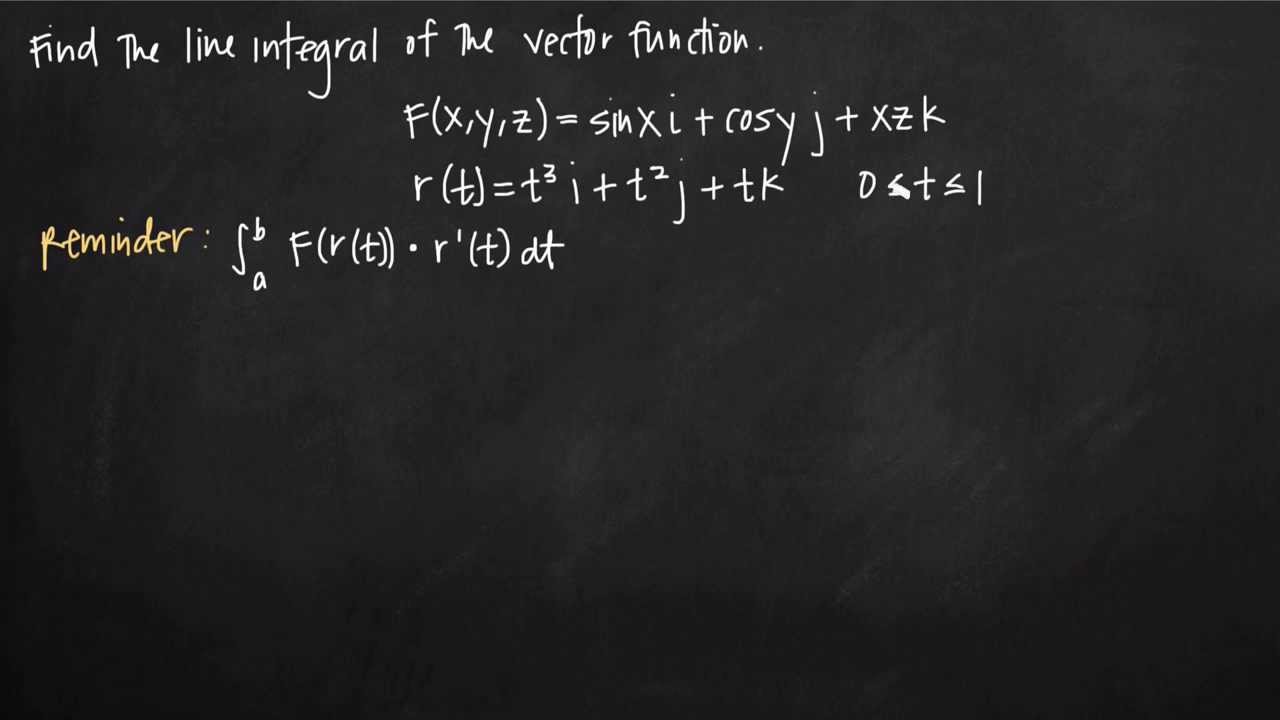 Find The line integral of The vector function.
F(x,y,z) = sinx i + cosy j + xz k
r(t) = t³ i + t² j + t k 0 ≤ t ≤ 1
Reminder: ∫ₐᵇ F(r(t)) · r'(t) dt